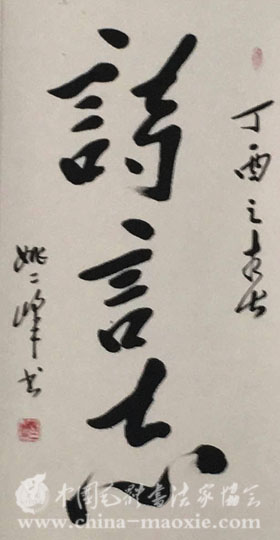 丁酉之春
詩言志
姚二峰书
中国毛体书法家协会
www.china-maoxie.com